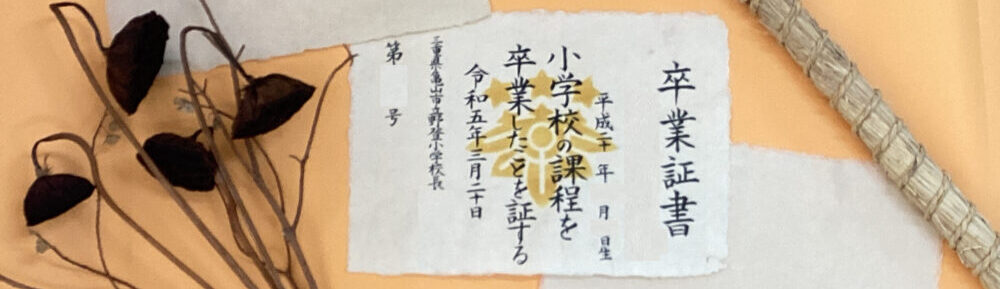 卒業証書
平成二十年 月 日生
小学校の課程を
卒業したことを証する
令和五年三月二十日
三重県亀山市立野登小学校長
第 号